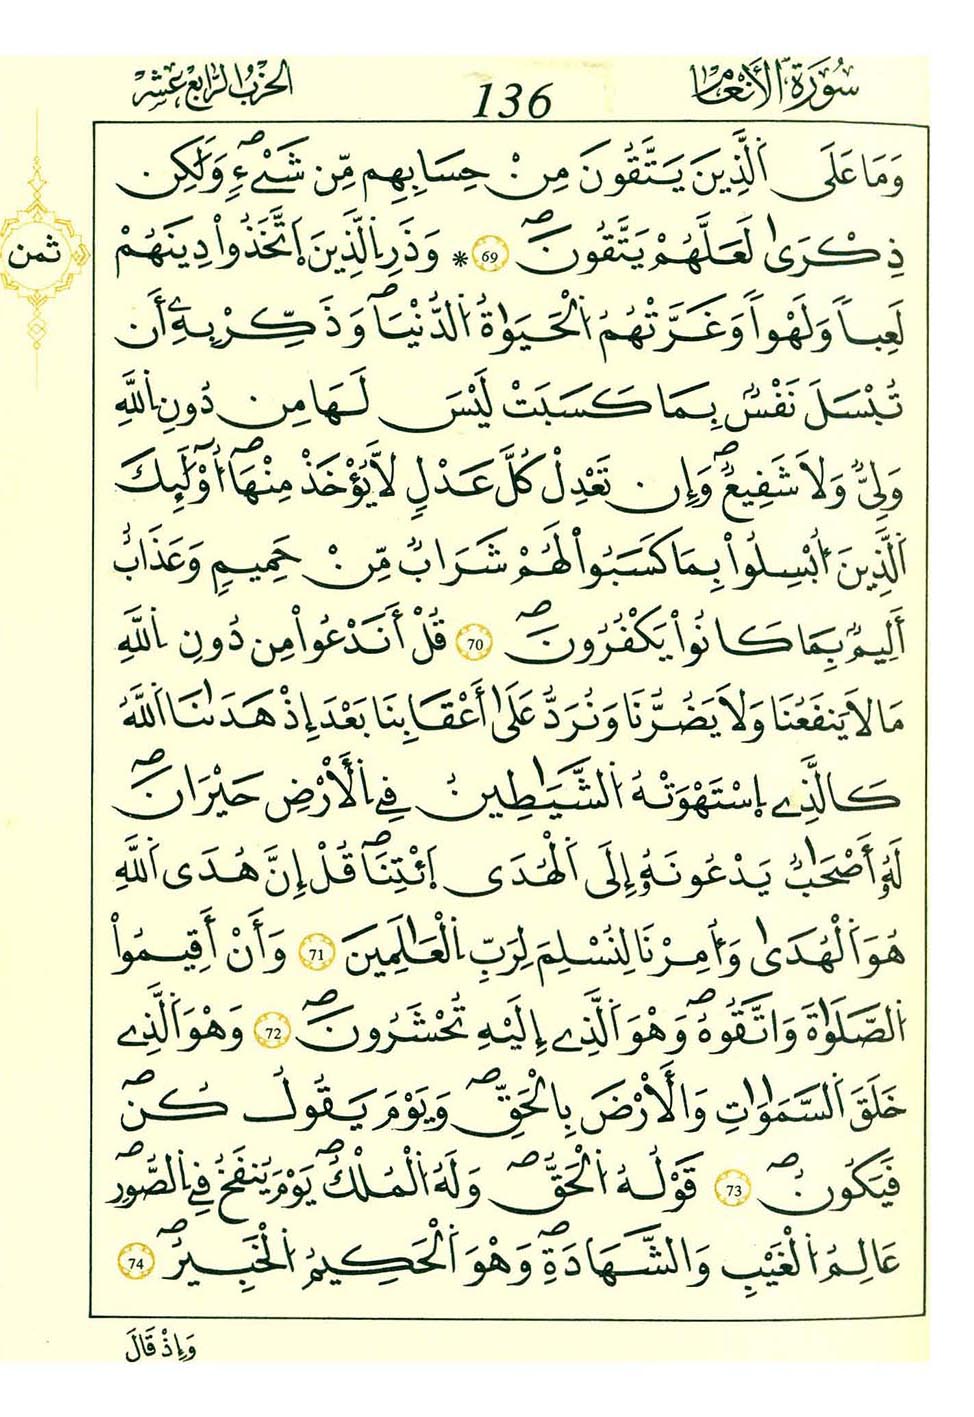 سُورَةُ الْأَنْعَامِ
136
الْحِزْبُ الرَّابِعُ عَشَرَ
وَمَا عَلَى اَلذِينَ يَتَّقُونَ مِنْ حِسَابِهِم مِّن شَےْءٖ وَلَٰكِن
ذِكْرَىٰ لَعَلَّهُمْ يَتَّقُونَۖ 69 * وَذَرِ اِلذِينَ اَتَّخَذُواْ دِينَهُمْ
ثمن
لَعِباٗ وَلَهْواٗ وَغَرَّتْهُمُ اُلْحَيَوٰةُ اُلدُّنْيَاۖ وَذَكِّرْ بِهِۦٓ أَن
تُبْسَلَ نَفْسُۢ بِمَا كَسَبَتْ لَيْسَ لَهَا مِن دُونِ اِللَّهِ
وَلِيّٞ وَلَا شَفِيعٞۖ وَإِن تَعْدِلْ كُلَّ عَدْلٖ لَّا يُؤْخَذْ مِنْهَاۖ أُوْلَٰٓئِكَ
اَلذِينَ أُبْسِلُواْ بِمَا كَسَبُواْ لَهُمْ شَرَابٞ مِّنْ حَمِيمٖ وَعَذَابٌ
أَلِيمُۢ بِمَا كَانُواْ يَكْفُرُونَۖ 70 قُلْ أَنَدْعُواْ مِن دُونِ اِللَّهِ
مَا لَا يَنفَعُنَا وَلَا يَضُرُّنَا وَنُرَدُّ عَلَىٰٓ أَعْقَابِنَا بَعْدَ إِذْ هَدَىٰنَا اَللَّهُ
كَالذِے اِسْتَهْوَتْهُ اُلشَّيَٰطِينُ فِے اِلْأَرْضِ حَيْرَانَۖ
لَهُۥٓ أَصْحَٰبٞ يَدْعُونَهُۥٓ إِلَى اَلْهُدَى اَئْتِنَاۖ قُلْ إِنَّ هُدَى اَللَّهِ
هُوَ اَلْهُدَىٰ وَأُمِرْنَا لِنُسْلِمَ لِرَبِّ اِلْعَٰلَمِينَ 71 وَأَنْ أَقِيمُواْ
اُلصَّلَوٰةَ وَاتَّقُوهُۖ وَهْوَ اَلذِے إِلَيْهِ تُحْشَرُونَۖ 72 وَهْوَ اَلذِے
خَلَقَ اَلسَّمَٰوَٰتِ وَالْأَرْضَ بِالْحَقِّۖ وَيَوْمَ يَقُولُ كُنۖ
فَيَكُونُۖ 73 قَوْلُهُ اُلْحَقُّۖ وَلَهُ اُلْمُلْكُۖ يَوْمَ يُنفَخُ فِے اِلصُّورِۖ
عَٰلِمُ اُلْغَيْبِ وَالشَّهَٰدَةِۖ وَهْوَ اَلْحَكِيمُ اُلْخَبِيرُۖ 74
وَإِذْ قَالَ